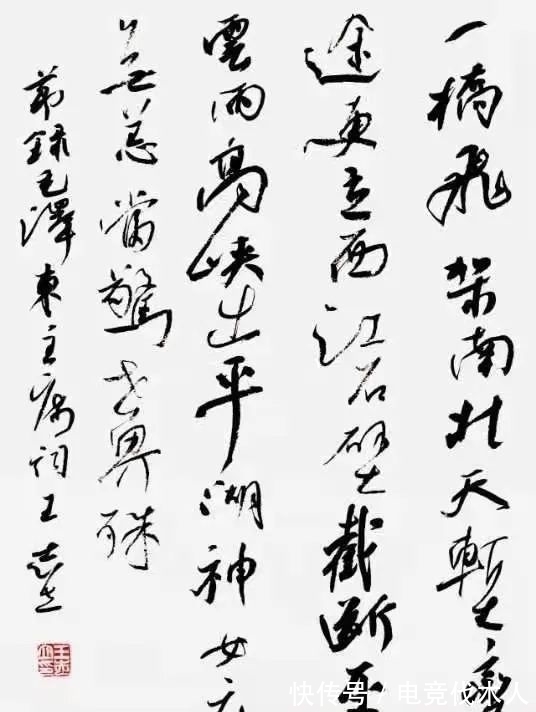 一橋飛架南北天塹变
途更立西江石壁截斷巫
雲雨高峡出平湖神女应
無恙當驚世界殊
节録毛澤東主席詞王志
快传号 / 电竞伐木人